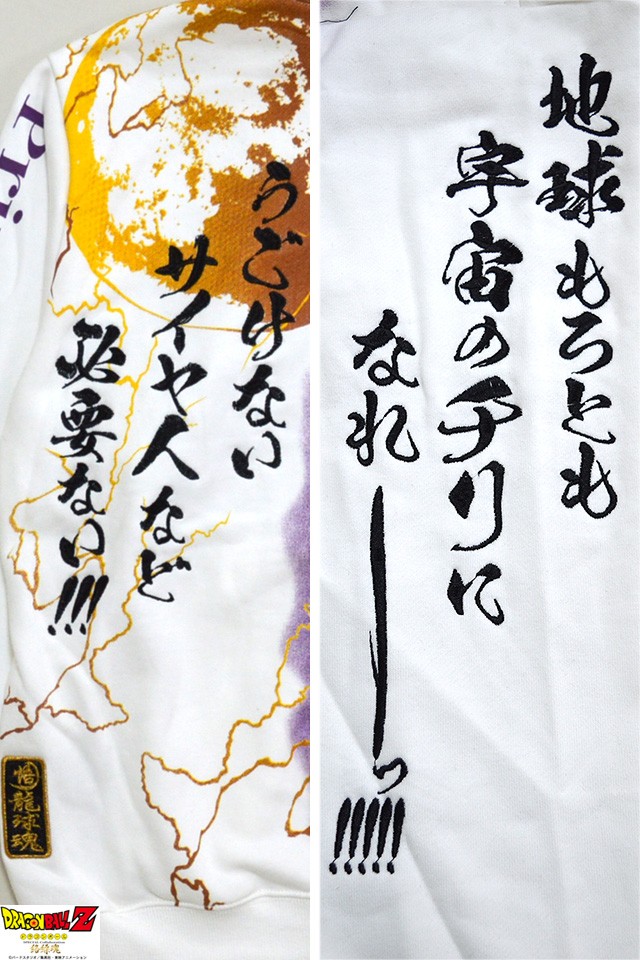 うごけない
サイヤ人など
必要ない!!!
地球もろとも
宇宙のチリに
なれーーッ!!!!!
Pri
悟
龍球魂
DRAGON BALL Z
ドラゴンボール
SPECIAL Collaboration
©バードスタジオ/集英社・東映アニメーション